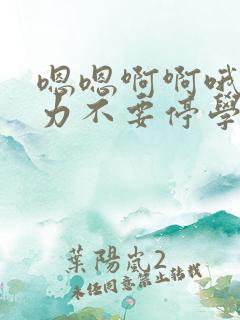 嗯嗯啊啊哦
力不要停學
葉陽嵐2
未经同意禁止转载